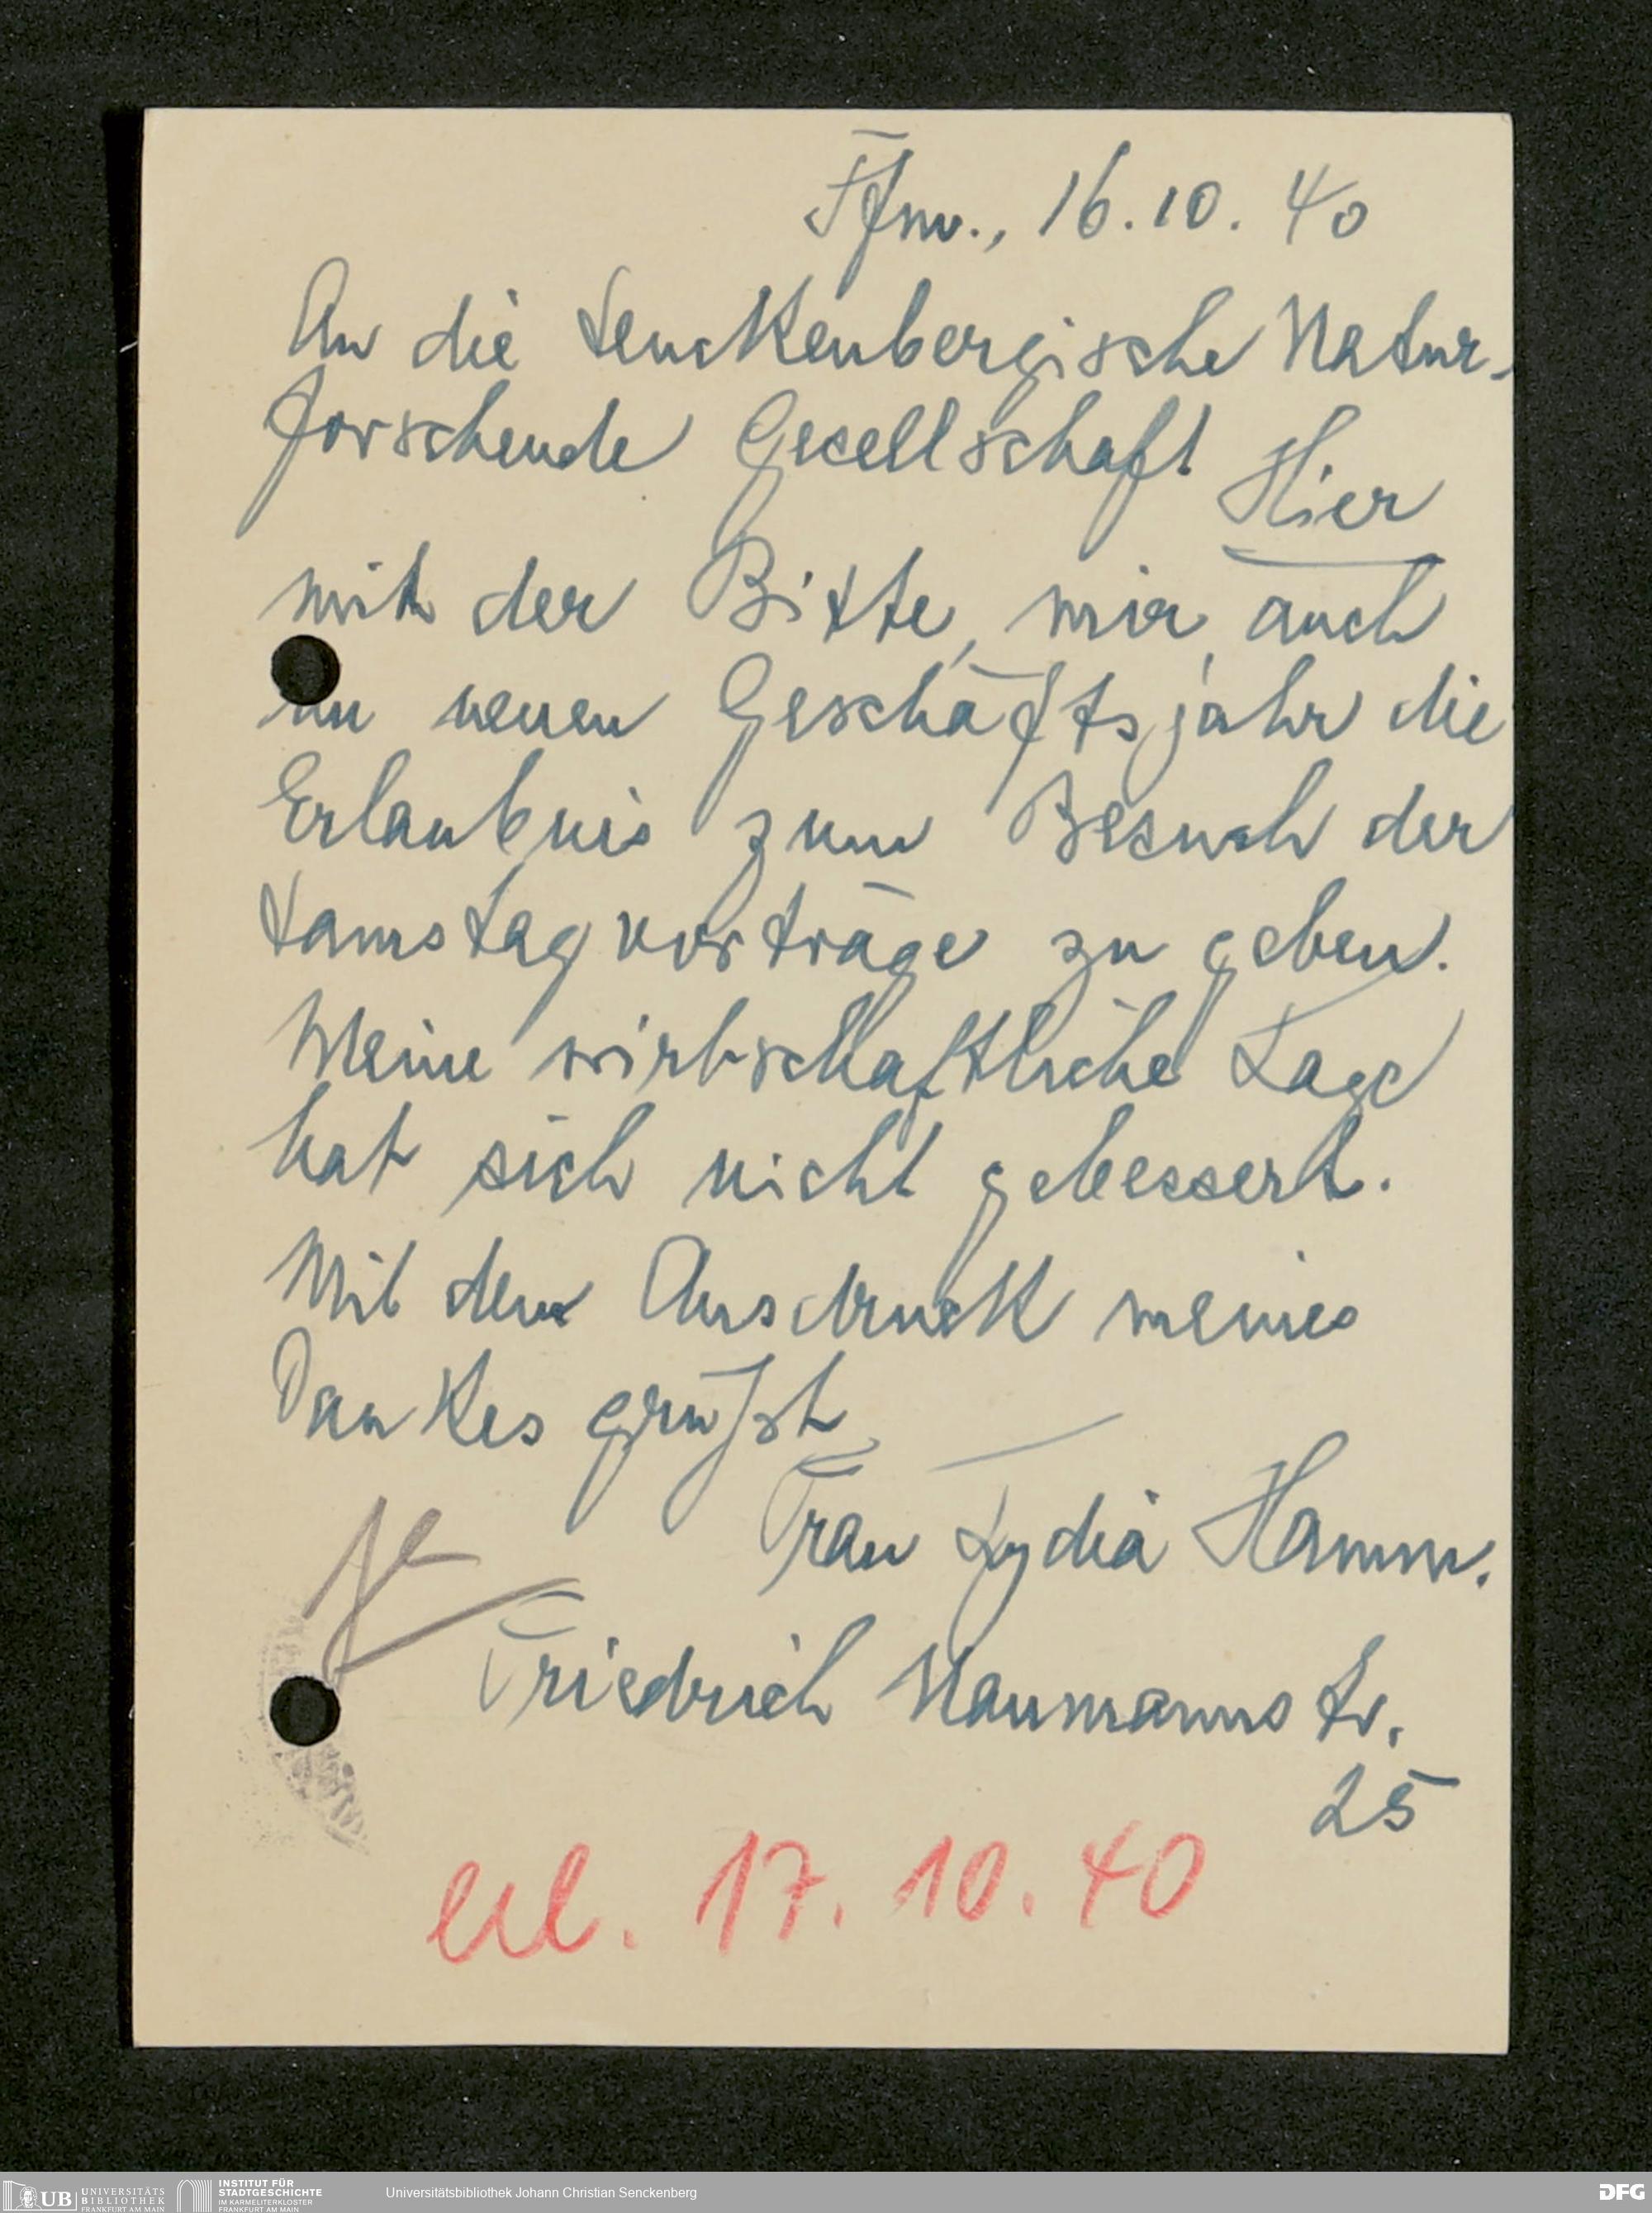 Ffm., 16.10.40
An die Senckenbergische Natur-
forschende Gesellschaft
Hier
mit der Bitte, mir auch
im neuen Geschäftsjahr die
Erlaubnis zum Besuch der
Samstagvorträge zu geben.
Meine wirtschaftliche Lage
hat sich nicht gebessert.
Mit dem Ausdruck meines
Dankes grüßt
Frau Lydia Hamm.
Friedrich Naumannstr.
25
erl. 17.10.40
UB UNIVERSITÄTS
BIBLIOTHEK
FRANKFURT AM MAIN
INSTITUT FÜR
STADTGESCHICHTE
IM KARMELITERKLOSTER
FRANKFURT AM MAIN
Universitätsbibliothek Johann Christian Senckenberg
DFG